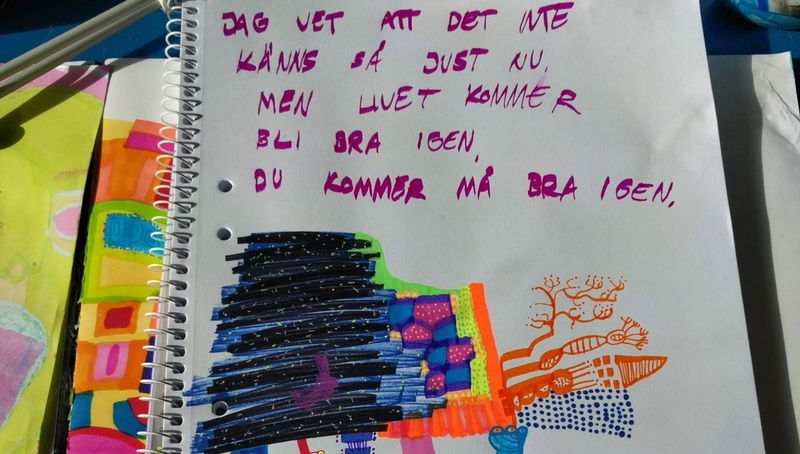 JAG VET ATT DET INTE
KÄNNS SÅ JUST NU.
MEN LIVET KOMMER
BLI BRA IGEN.
DU KOMMER MÅ BRA IGEN.